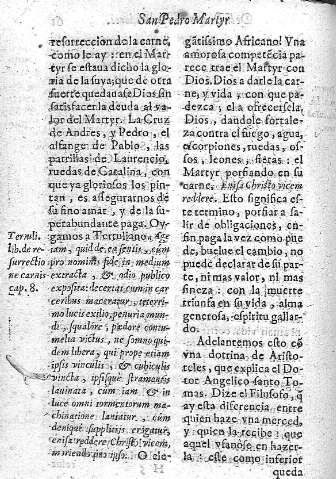 San Pedro Martyr
resurreccion de la carne,
como le ay: en el Martyr
se estava dicho la gloria
de la suya, que de otra
suerte quedaua Dios sin
satisfacer la deuda al valor
del Martyr. La Cruz
de Andres, y Pedro, el
alfange de Pablo, las
parrillas de Laurencio,
ruedas de Catalina, con
que ya gloriosos los pintan,
es asegurarnos de
su fino amar, y de la superabundante
paga. Oygamos
a Tertuliano
Tertuli.
lib. de re-
surrectio
ne carnis
cap. 8.
pro nomini fide in medium
extracta, & odio publico
exposita: decertat, cum in carceribus
maceratur, teterrimo
lucis exilio, penuria mundi,
squalore, pædore contumelia
victus, ne somno quidem
libera, qui prope etiam
ipsis vinculis, & cubiculis
vincta, ipsisque stramentis
lauinata, cum iam & in
luce omni tormentorum machinatione
laniatur, cum
denique suppliciis erogatur,
enisa reddere Christo vicem,
moriendo pro ipso. O ele-
gãtissimo Africano! Vna
amorosa competẽcia parece
trae el Martyr con
Dios. Dios a darle la carne,
y vida, con que padezca;
el a ofrecersela,
Dios, dandole fortaleza
contra el fuego, agua,
escorpiones, ruedas, ossos,
leones, fieras: el
Martyr porfiando en su
carne. Enisa Christo vicem
reddere. Esto significa este
termino, porfiar a salir
de obligaciones, en
fin paga la vez como puede,
buelue el cambio, no
puede declarar de su parte,
ni mas valor, ni mas
fineza: con la muerte
triunfa en su vida, alma
generosa, espiritu gallardo.
Adelantemos esto cõ
vna dotrina de Aristoteles,
que explica el Doctor
Angelico santo Tomas.
Dize el Filosofo, q̃
ay esta diferencia entre
quien haze vna merced,
y quien la recibe: que
aquel vfanose en hazerla:
este como inferior
queda